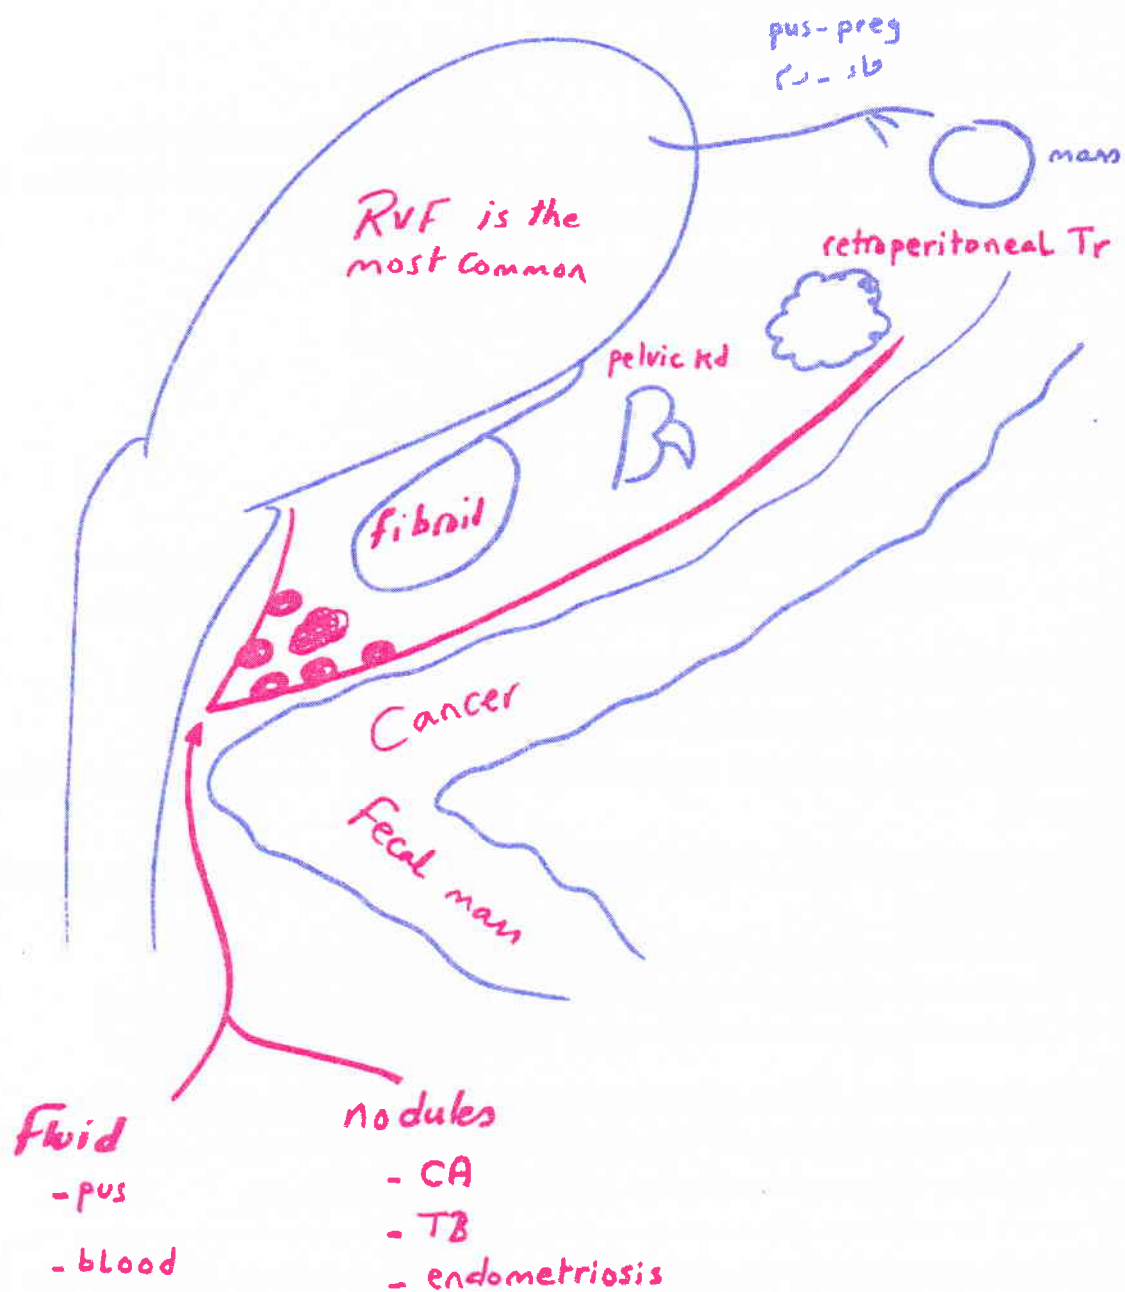 pus-preg
mass
RVF is the
most common
retroperitoneal Tr
pelvic Kd
fibroid
Cancer
Fecal mass
Fluid
- pus
- blood
nodules
- CA
- TB
- endometriosis